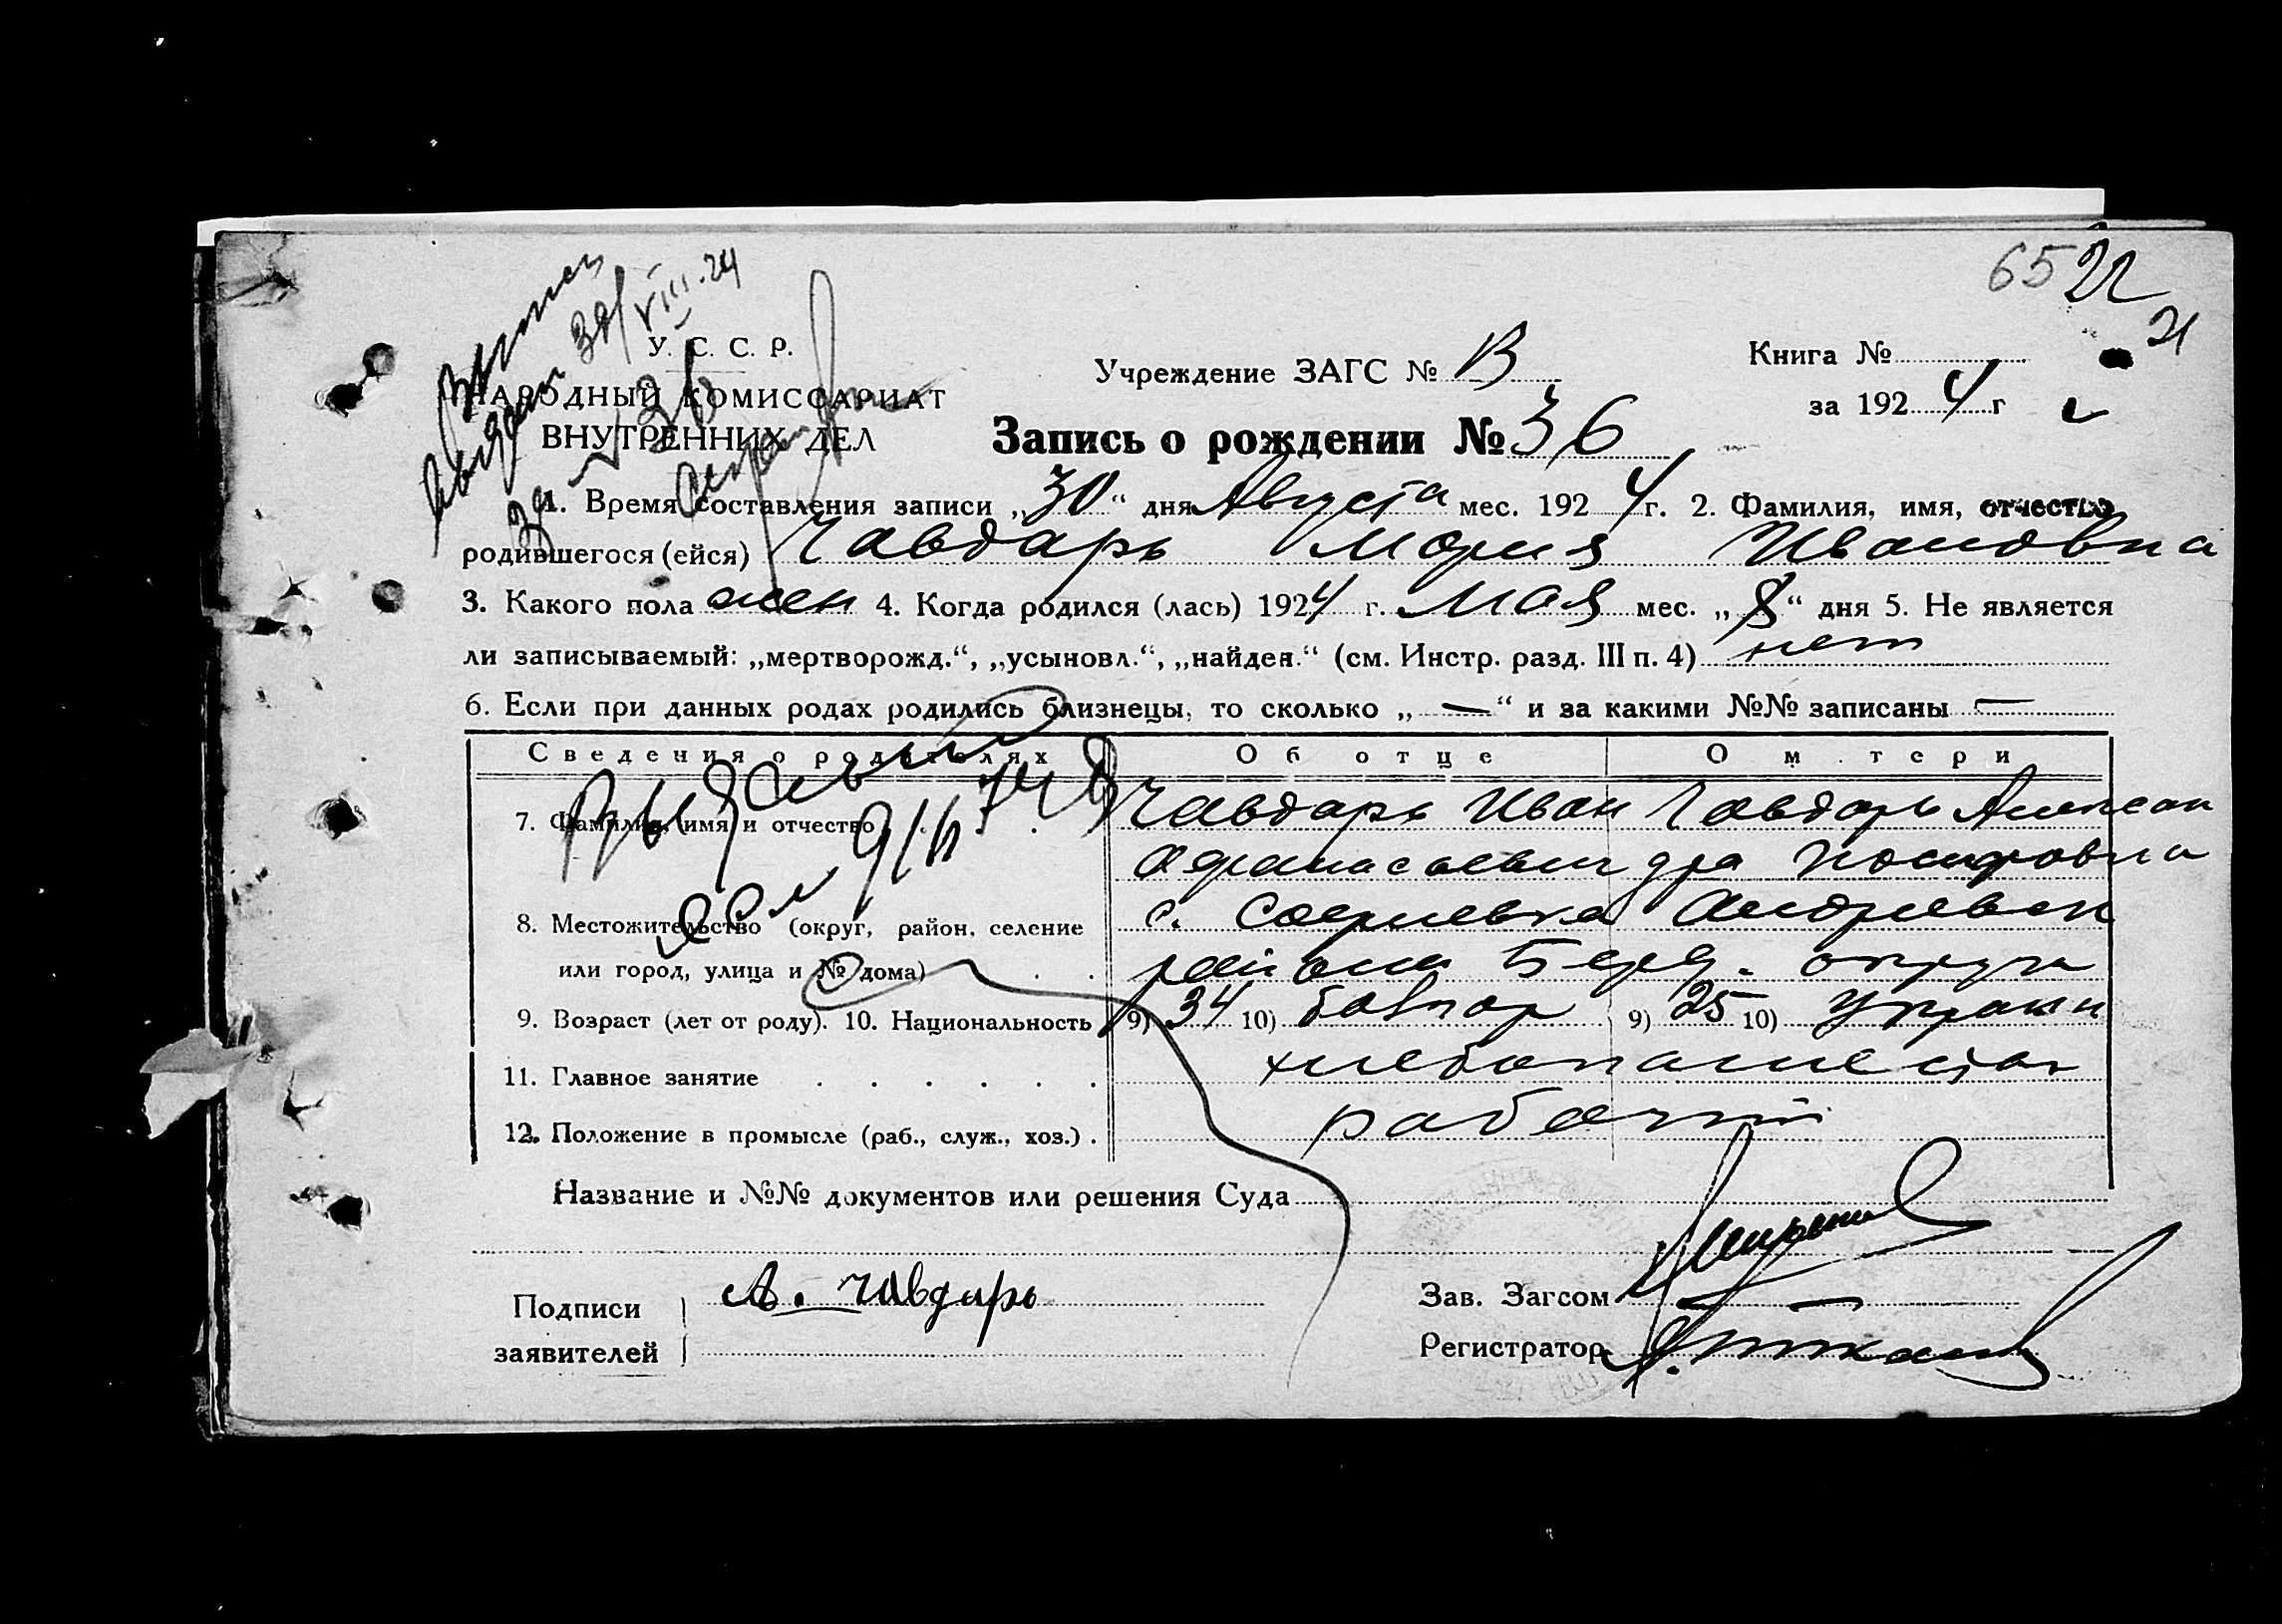 65 22
21
Выпись
выдан 30/VIII.24
за № 36
У. С. С. Р.
НАРОДНЫЙ КОМИССАРИАТ
ВНУТРЕННИХ ДЕЛ
Учреждение ЗАГС № В
Книга №
за 1924 г
Запись о рождении № 36
1. Время составления записи „30“ дня Августа мес. 1924 г. 2. Фамилия, имя, отчество
родившегося (ейся) Чавдарь Мария Ивановна
3. Какого пола жен 4. Когда родился (лась) 1924 г. Мая мес. „8“ дня 5. Не является
ли записываемый: „мертворожд.“, „усыновл.“, „найден.“ (см. Инстр. разд. III п. 4) нет
6. Если при данных родах родились близнецы, то сколько „—“ и за какими №№ записаны —
Сведения о родителях Об отце О м тери
7. Фамилия, имя и отчество Чавдарь Иван Чавдарь Алексан
Афанасьевич дра Иосифовна
8. Местожительство (округ, район, селение с. Софиевка Андреевск
или город, улица и № дома) района Берд. округа
9. Возраст (лет от роду). 10. Национальность 9) 34 10) болгар 9) 25 10) украин
11. Главное занятие хлебопашество
12. Положение в промысле (раб., служ., хоз.) рабочий
Название и №№ документов или решения Суда
Подписи заявителей А. Чавдарь
Зав. Загсом
Регистратор